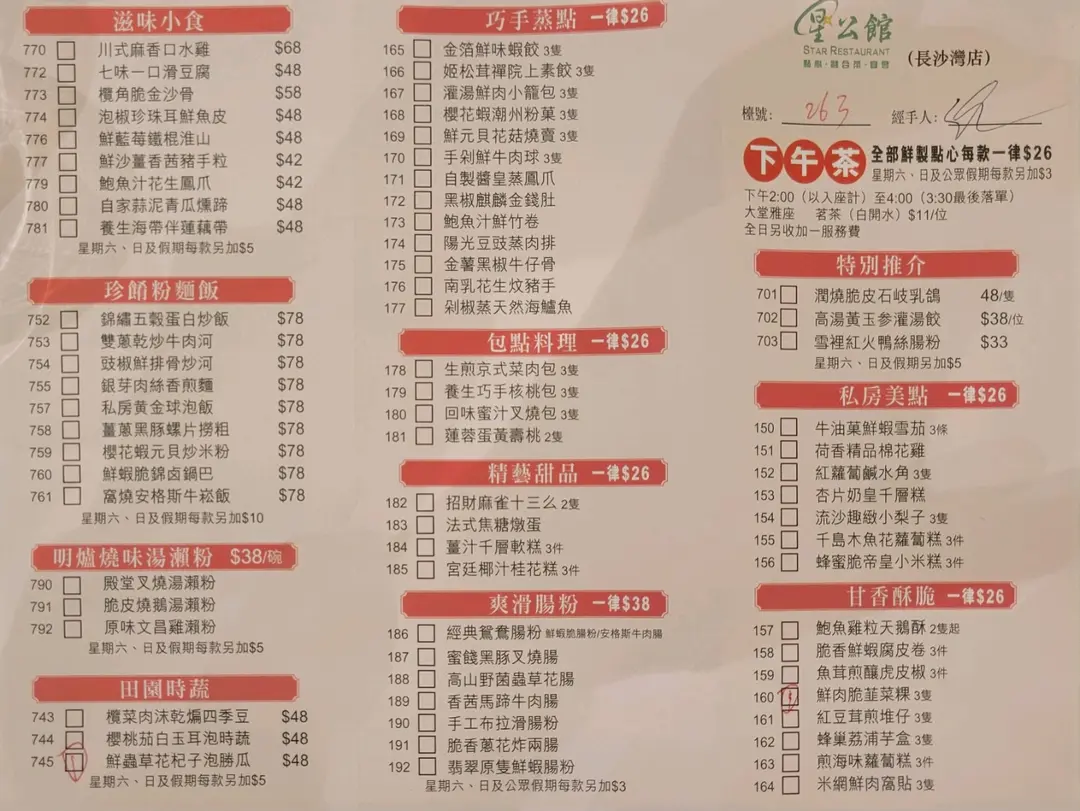 滋味小食
770 川式麻香口水雞 $68
772 七味一口滑豆腐 $48
773 欖角脆金沙骨 $58
774 泡椒珍珠耳鮮魚皮 $48
776 鮮藍莓鐵棍淮山 $48
777 鮮沙薑香茜豬手粒 $42
779 鮑魚汁花生鳳爪 $42
780 自家蒜泥青瓜燻蹄 $48
781 養生海帶伴蓮藕帶 $48
星期六、日及假期每款另加$5
珍餚粉麵飯
752 錦繡五穀蛋白炒飯 $78
753 雙蔥乾炒牛肉河 $78
754 豉椒鮮排骨炒河 $78
755 銀芽肉絲香煎麵 $78
757 私房黃金球泡飯 $78
758 薑蔥黑豚螺片撈粗 $78
759 櫻花蝦元貝炒米粉 $78
760 鮮蝦脆錦卤鍋巴 $78
761 窩燒安格斯牛崧飯 $78
星期六、日及假期每款另加$10
明爐燒味湯瀨粉 $38/碗
790 殿堂叉燒湯瀨粉
791 脆皮燒鵝湯瀨粉
792 原味文昌雞瀨粉
星期六、日及假期每款另加$5
田園時蔬
743 欖菜肉沫乾煸四季豆 $48
744 櫻桃茄白玉耳泡時蔬 $48
745 鮮蟲草花杞子泡勝瓜 $48
星期六、日及假期每款另加$5
巧手蒸點 一律$26
165 金箔鮮味蝦餃 3隻
166 姬松茸禪院上素餃 3隻
167 灌湯鮮肉小籠包 3隻
168 櫻花蝦潮州粉菓 3隻
169 鮮元貝花菇燒賣 3隻
170 手剁鮮牛肉球 3隻
171 自製醬皇蒸鳳爪
172 黑椒麒麟金錢肚
173 鮑魚汁鮮竹卷
174 陽光豆豉蒸肉排
175 金薯黑椒牛仔骨
176 南乳花生炆豬手
177 剁椒蒸天然海鱸魚
包點料理 一律$26
178 生煎京式菜肉包 3隻
179 養生巧手核桃包 3隻
180 回味蜜汁叉燒包 3隻
181 蓮蓉蛋黃壽桃 2隻
精藝甜品 一律$26
182 招財麻雀十三么 2隻
183 法式焦糖燉蛋
184 薑汁千層軟糕 3件
185 宮廷椰汁桂花糕 3件
爽滑腸粉 一律$38
186 經典鴛鴦腸粉 鮮蝦脆腸粉/安格斯牛肉腸
187 蜜餞黑豚叉燒腸
188 高山野菌蟲草花腸
189 香茜馬蹄牛肉腸
190 手工布拉滑腸粉
191 脆香蔥花炸兩腸
192 翡翠原隻鮮蝦腸粉
星期六、日及公眾假期每款另加$3
星公館
STAR RESTAURANT
(長沙灣店)
檯號: 263 經手人:
下午茶 全部鮮製點心每款一律$26
星期六、日及公眾假期每款另加$3
下午2:00(以入座計)至4:00(3:30最後落單)
大堂雅座 茗茶(白開水)$11/位
全日另收加一服務費
特別推介
701 潤燒脆皮石岐乳鴿 48/隻
702 高湯黃玉參灌湯餃 $38/位
703 雪裡紅火鴨絲腸粉 $33
星期六、日及假期每款另加$5
私房美點 一律$26
150 牛油菓鮮蝦雪茄 3條
151 荷香精品棉花雞
152 紅蘿蔔鹹水角 3隻
153 杏片奶皇千層糕
154 流沙趣緻小梨子 3隻
155 千島木魚花蘿蔔糕 3件
156 蜂蜜脆帝皇小米糕 3件
甘香酥脆 一律$26
157 鮑魚雞粒天鵝酥 2隻起
158 脆香鮮蝦腐皮卷 3件
159 魚茸煎釀虎皮椒 3件
160 鮮肉脆韮菜粿 3隻
161 紅豆茸煎堆仔 3隻
162 蜂巢荔浦芋盒 3隻
163 煎海味蘿蔔糕 3件
164 米網鮮肉窩貼 3隻